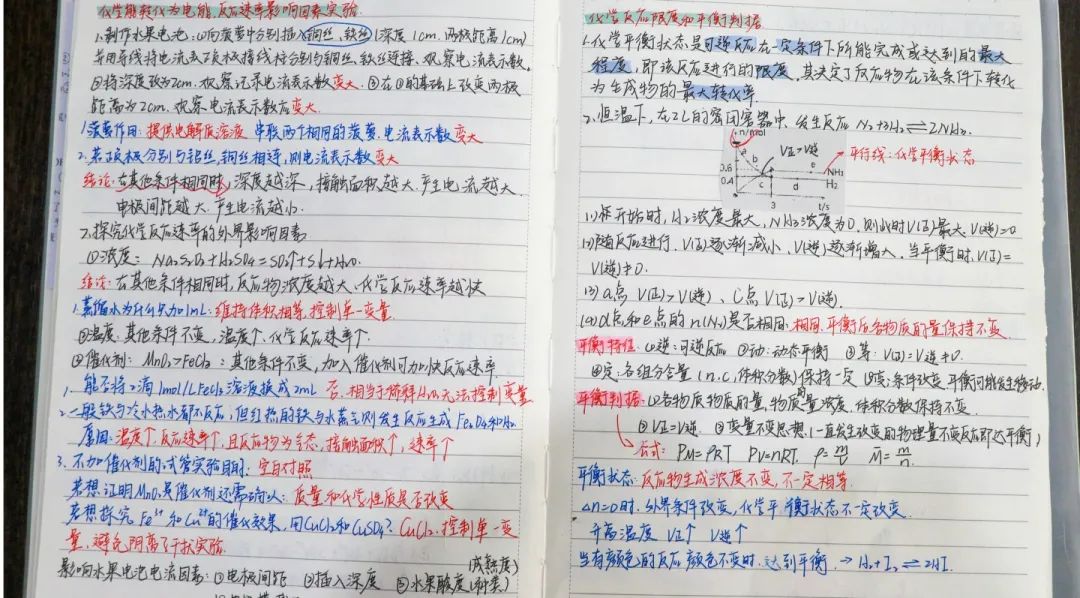 化学能转化为电能.反应速率影响因素实验
1.制作水果电池:①向菠萝中分别插入铜丝,铁丝(深度1cm.两极距离1cm)
并用导线将电流表两极接线柱分别与铜丝,铁丝连接、观察电流表示数.
②将深度改为2cm.观察记录电流表示数变大. ③在①的基础上改变两极
距离为2cm.观察电流表示数应变大
1.菠萝作用:提供电解质溶液 串联两个相同的菠萝.电流表示数变大
2.若两极分别与铝丝,铜丝相连,则电流表示数变大
结论:在其他条件相同时,深度越深,接触面积越大.产生电流越大.
电极间距越大.产生电流越小.
2.探究化学反应速率的外界影响因素
①浓度: Na2S2O3+H2SO4=SO2↑+S↓+H2O.
结论:在其他条件相同时,反应物浓度越大.化学反应速率越快
1.蒸馏水为什么只加1mL:维持体积相等,控制单一变量
②温度.其他条件不变,温度↑.化学反应速率↑.
③催化剂: MnO2>FeCl3:其他条件不变,加入催化剂可加快反应速率
1. 能否将2滴1mol/L FeCl3溶液换成2mL 否,相当于稀释H2O2无法控制变量
2.一般铁与冷水热水都不反应,但红热的铁与水蒸气则发生反应生成Fe3O4和H2.
原因:温度↑.反应速率↑,且反应物为气态,接触面积↑,速率↑
3.不加催化剂的试管实验目的:空白对照
若想证明MnO2是催化剂还需确认:质量和化学性质是否改变
若想探究Fe3+和Cu2+的催化效果,用CuCl2和CuSO4? CuCl2.控制单一变
量,避免阴离子干扰实验.
(成熟度)
影响水果电池电流因素:①电极间距 ②插入深度 ③水果酸度(种类)
化学反应限度和平衡判据
1.化学平衡状态是可逆反应在一定条件下所能完成或达到的最大
程度,即该反应进行的限度,其决定了反应物在该条件下转化
为生成物的最大转化率.
2.恒温下,在2L的密闭容器中.发生反应N2+3H2⇌2NH3.
n/mol
V正>V逆
平行线:化学平衡状态
a b e
0.6 NH3
0.4 c d H2
3 t/s
(1)在开始时,H2浓度最大,NH3浓度为0,则此时V(正)最大.V(逆)=0
(2)随反应进行.V(正)逐渐减小、V(逆)逐渐增大.当平衡时.V(正)=
V(逆)≠0.
(3)a点V(正)>V(逆)、C点V(正)>V(逆).
(4)d点和e点的n(N2)是否相同.相同.平衡后各物质的量保持不变
平衡特征:①逆:可逆反应 ②动:动态平衡 ③等:V(正)=V逆≠0.
④定:各组分含量(n.c.体积分数)保持一定 ⑤变:条件改变.平衡可能发生移动.
平衡判据:①各物质物质的量,物质的量浓度.体积分数保持不变
②V正=V逆. ③变量不变思想(一直发生改变的物理量不变反应即达平衡)
公式: PM=ρRT PV=nRT. ρ=m/V M=m/n.
平衡状态:反应物生成浓度不变,不一定相等.
△n=0时.外界条件改变,化学平衡状态不一定改变.
升高温度 V正↑ V逆↑
当有颜色的反应颜色不变时.达到平衡.→H2+I2⇌2HI.